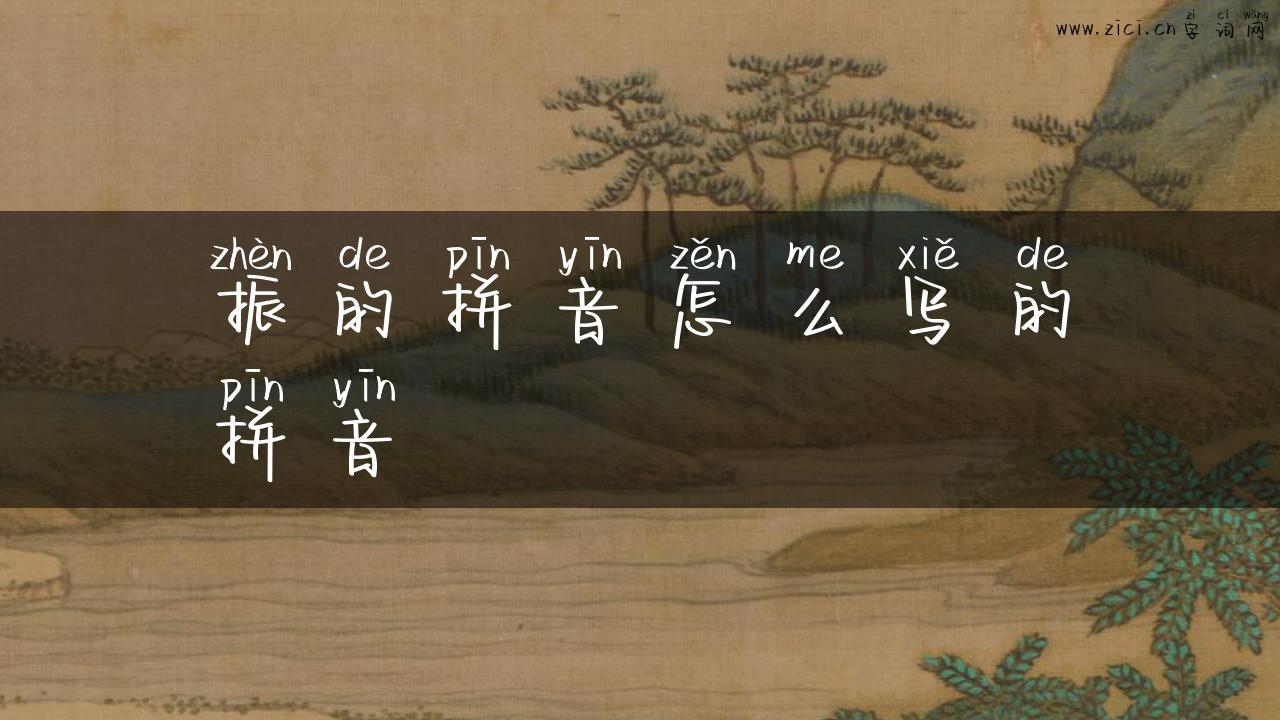 zì cí wǎng
www.zici.cn 字词网
zhèn de pīn yīn zěn me xiě de
振的拼音怎么写的
pīn yīn
拼音